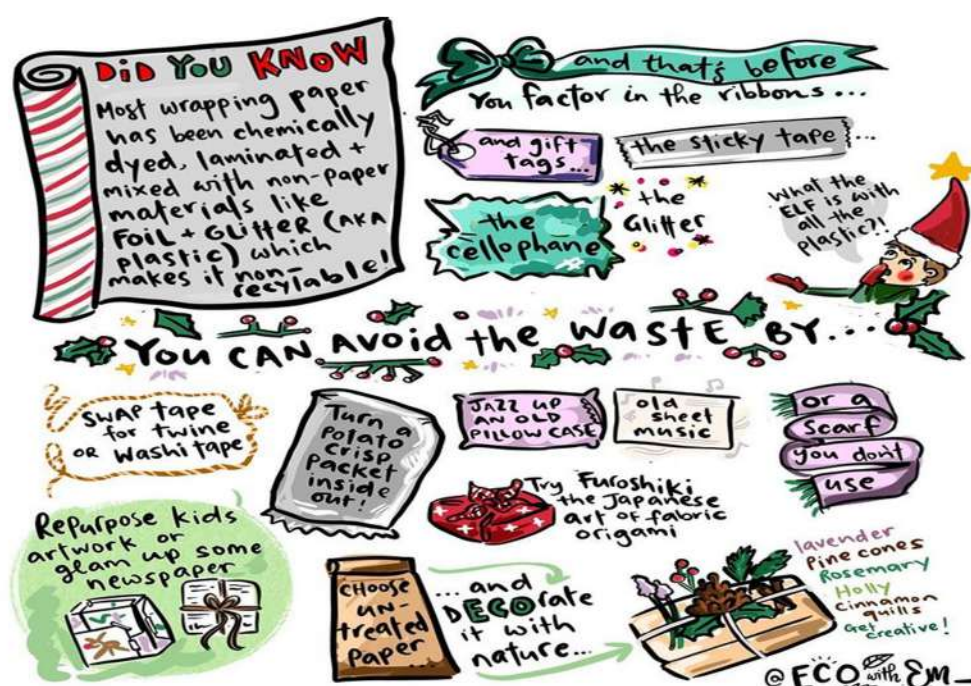 DID YOU KNOW
Most wrapping paper
has been chemically
dyed, laminated +
mixed with non-paper
materials like
FOIL + GLITTER (AKA
plastic) which
makes it non-
recylable!
and that's before
You factor in the ribbons...
and gift
tags...
the sticky tape...
the
cellophane
the
Glitter
What the
ELF is with
all the
plastic?!
You CAN AVOID the WASTE BY...
SWAP tape
for twine
OR Washi tape
Turn a
potato
crisp
packet
inside
out!
JAZZ UP
AN OLD
PILLOW CASE
old
sheet
music
or a
scarf
you don't
use
Repurpose kids
artwork or
glam up some
newspaper
Try Furoshiki
the Japanese
art of fabric
origami
CHOOSE
UN-
treated
paper
...and
DECOrate
it with
nature...
lavender
Pine cones
Rosemary
Holly
Cinnamon
quills
Get
creative!
@ECO with Em_